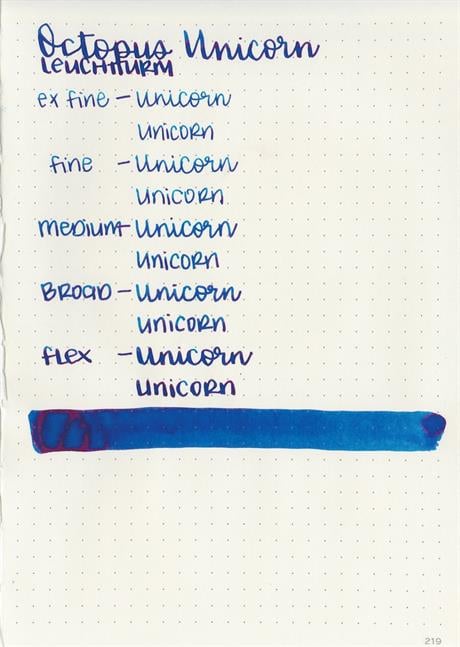 Octopus Unicorn
LEUCHTTURM
ex fine - Unicorn
UNICORN
fine - Unicorn
UNICORN
MEDIUM - Unicorn
UNICORN
BROAD - Unicorn
UNICORN
FLEX - Unicorn
UNICORN
219